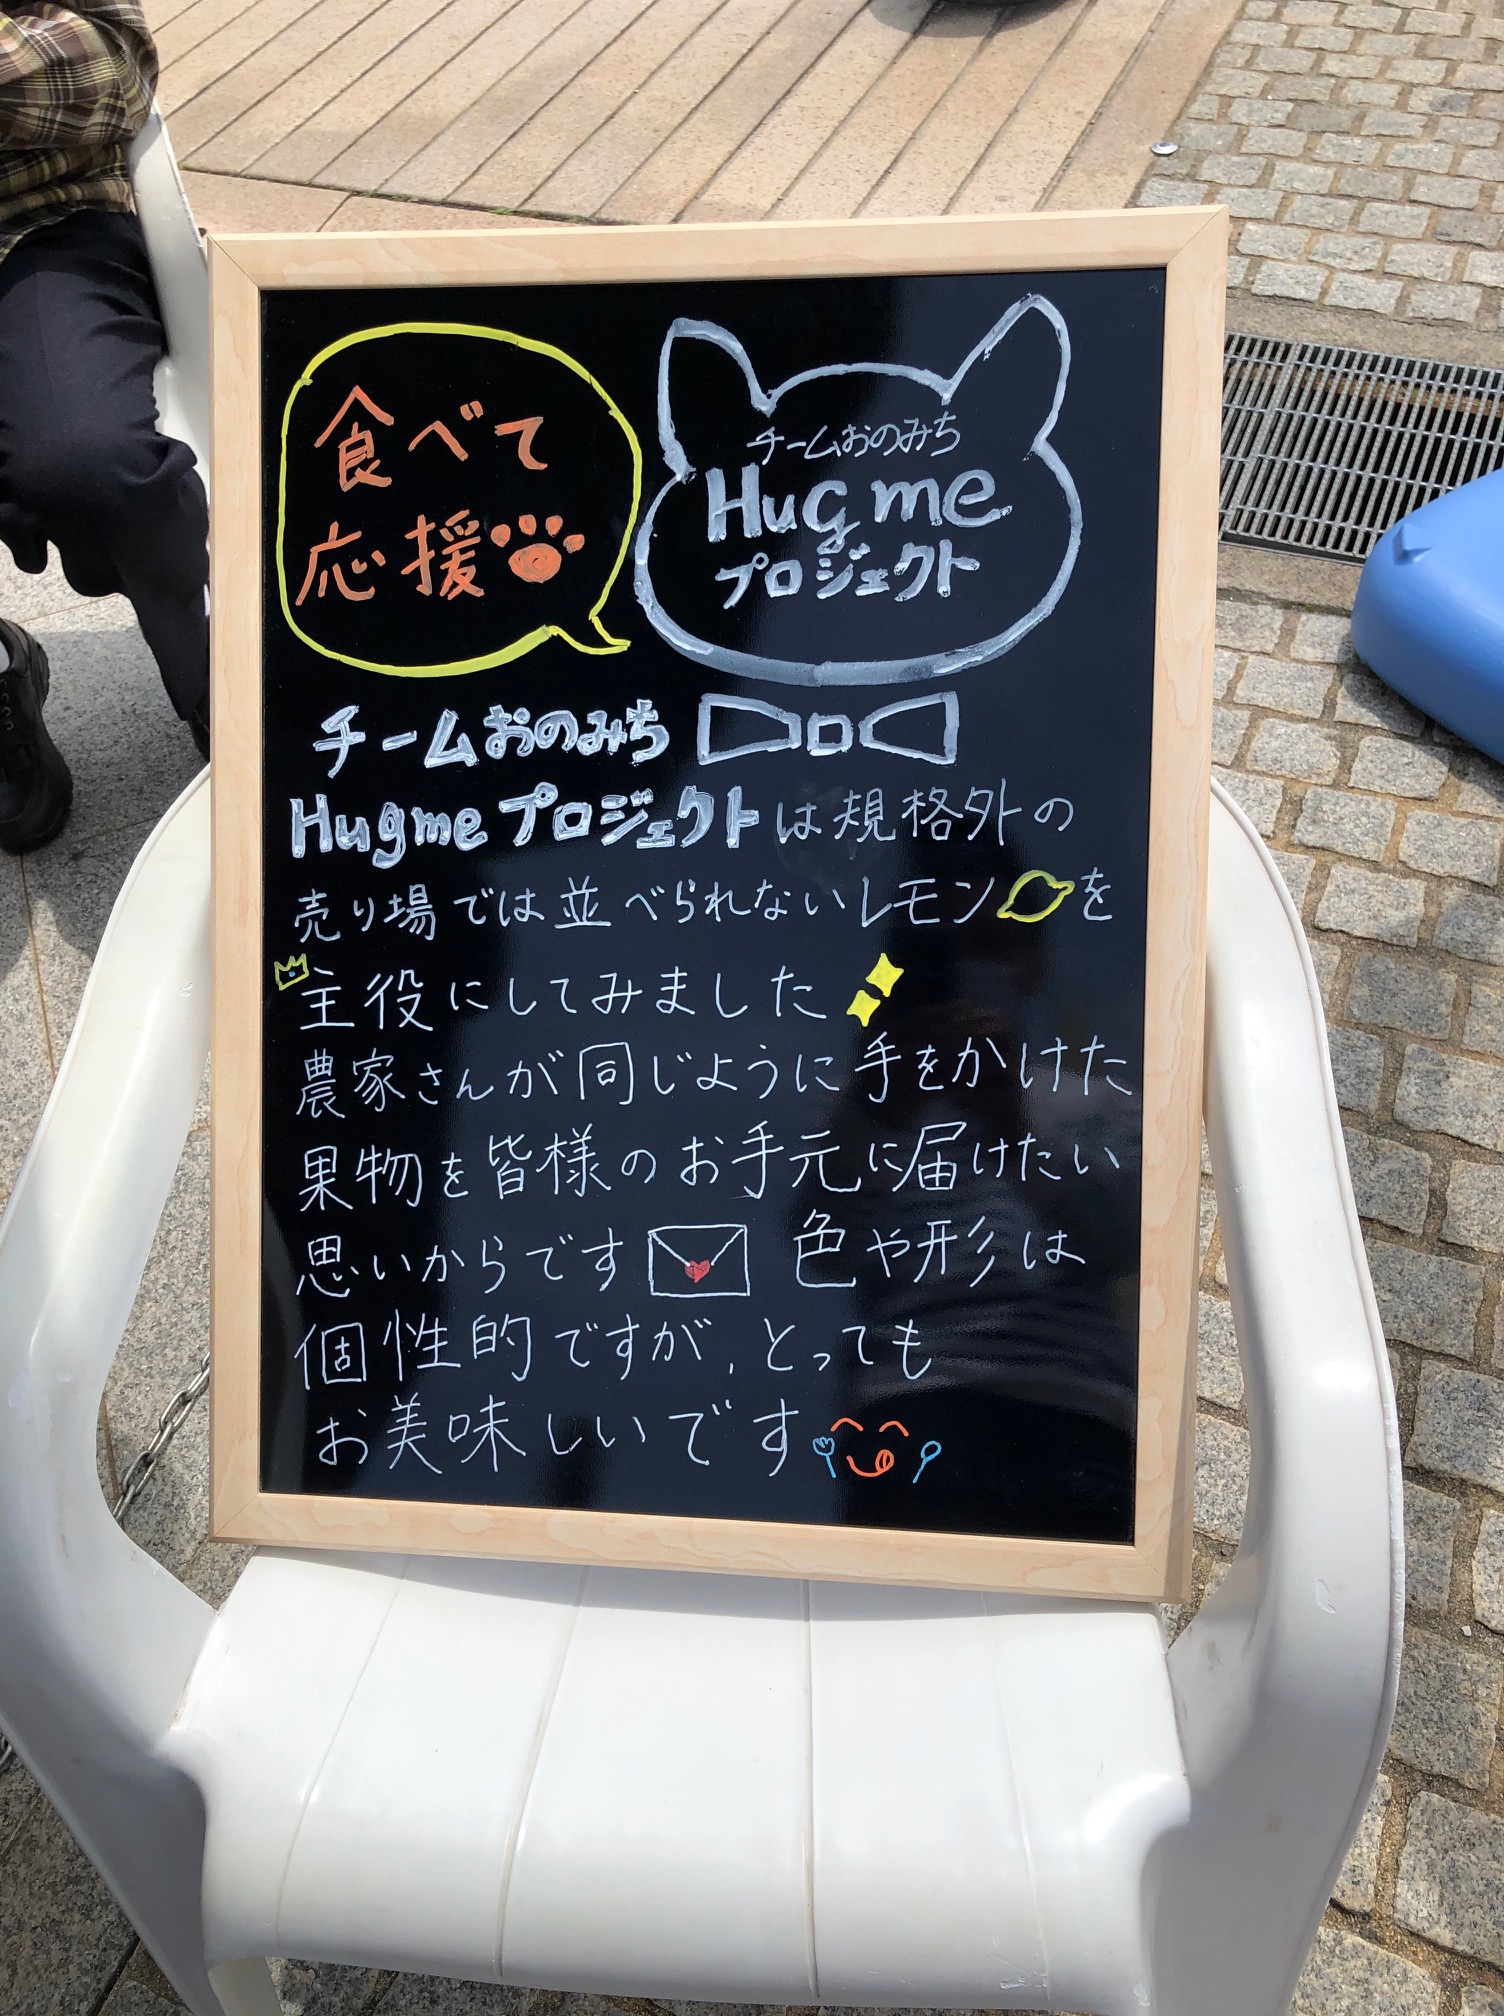 食べて
応援
チームおのみち
Hug me
プロジェクト
チームおのみち
Hugme プロジェクトは規格外の
売り場では並べられないレモンを
主役にしてみました
農家さんが同じように手をかけた
果物を皆様のお手元に届けたい
思いからです 色や形は
個性的ですが、とっても
お美味しいです